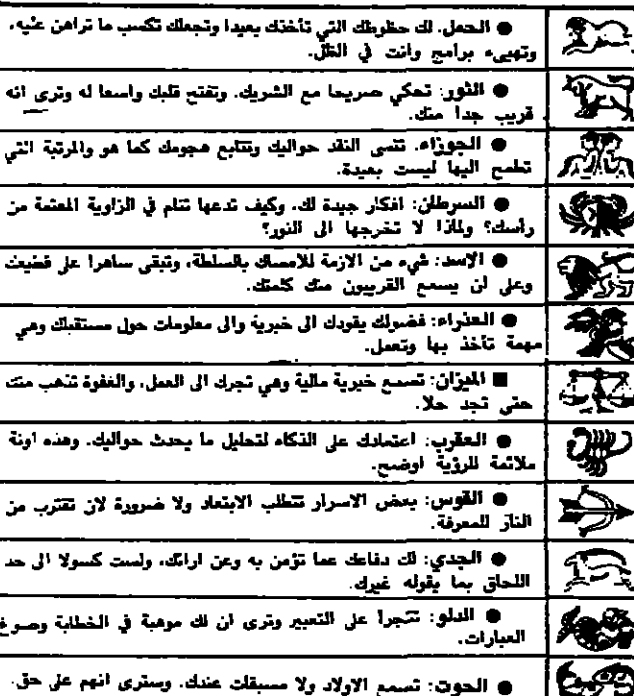 ● الحمل. لك حظوظك التي تأخذك بعيدا وتجعلك تكسب ما تراهن عليه،
وتهيىء برامج وانت في الظل.
● الثور: تحكي صريحا مع الشريك. وتفتح قلبك واسعا له وترى انه
قريب جدا منك.
● الجوزاء. تنسى النقد حواليك وتتابع هجومك كما هو والمرتبة التي
تطمح اليها ليست بعيدة.
● السرطان: افكار جيدة لك، وكيف تدعها تنام في الزاوية المعتمة من
رأسك؟ ولماذا لا تخرجها الى النور؟
● الاسد: شيء من الازمة للامساك بالسلطة، وتبقى ساهرا على قضيت
وعلى لن يسمع القريبون منك كلمتك.
● العذراء: فضولك يقودك الى خبرية والى معلومات حول مستقبلك وهي
مهمة تأخذ بها وتعمل.
■ الميزان: تسمع خبرية مالية وهي تجرك الى العمل، والغفوة تذهب منك
حتى تجد حلا.
● العقرب: اعتمادك على الذكاء لتحليل ما يحدث حواليك. وهذه اونة
ملائمة للرؤية اوضح.
● القوس: بعض الاسرار تتطلب الابتعاد ولا ضرورة لان تقترب من
النار للمعرفة.
● الجدي: لك دفاعك عما تؤمن به وعن ارائك، ولست كسولا الى حد
اللحاق بما يقوله غيرك.
● الدلو: تتجرأ على التعبير وترى ان لك موهبة في الخطابة وصوغ
العبارات.
● الحوت: تسمع الاولاد ولا مسبقات عندك. وسترى انهم على حق.